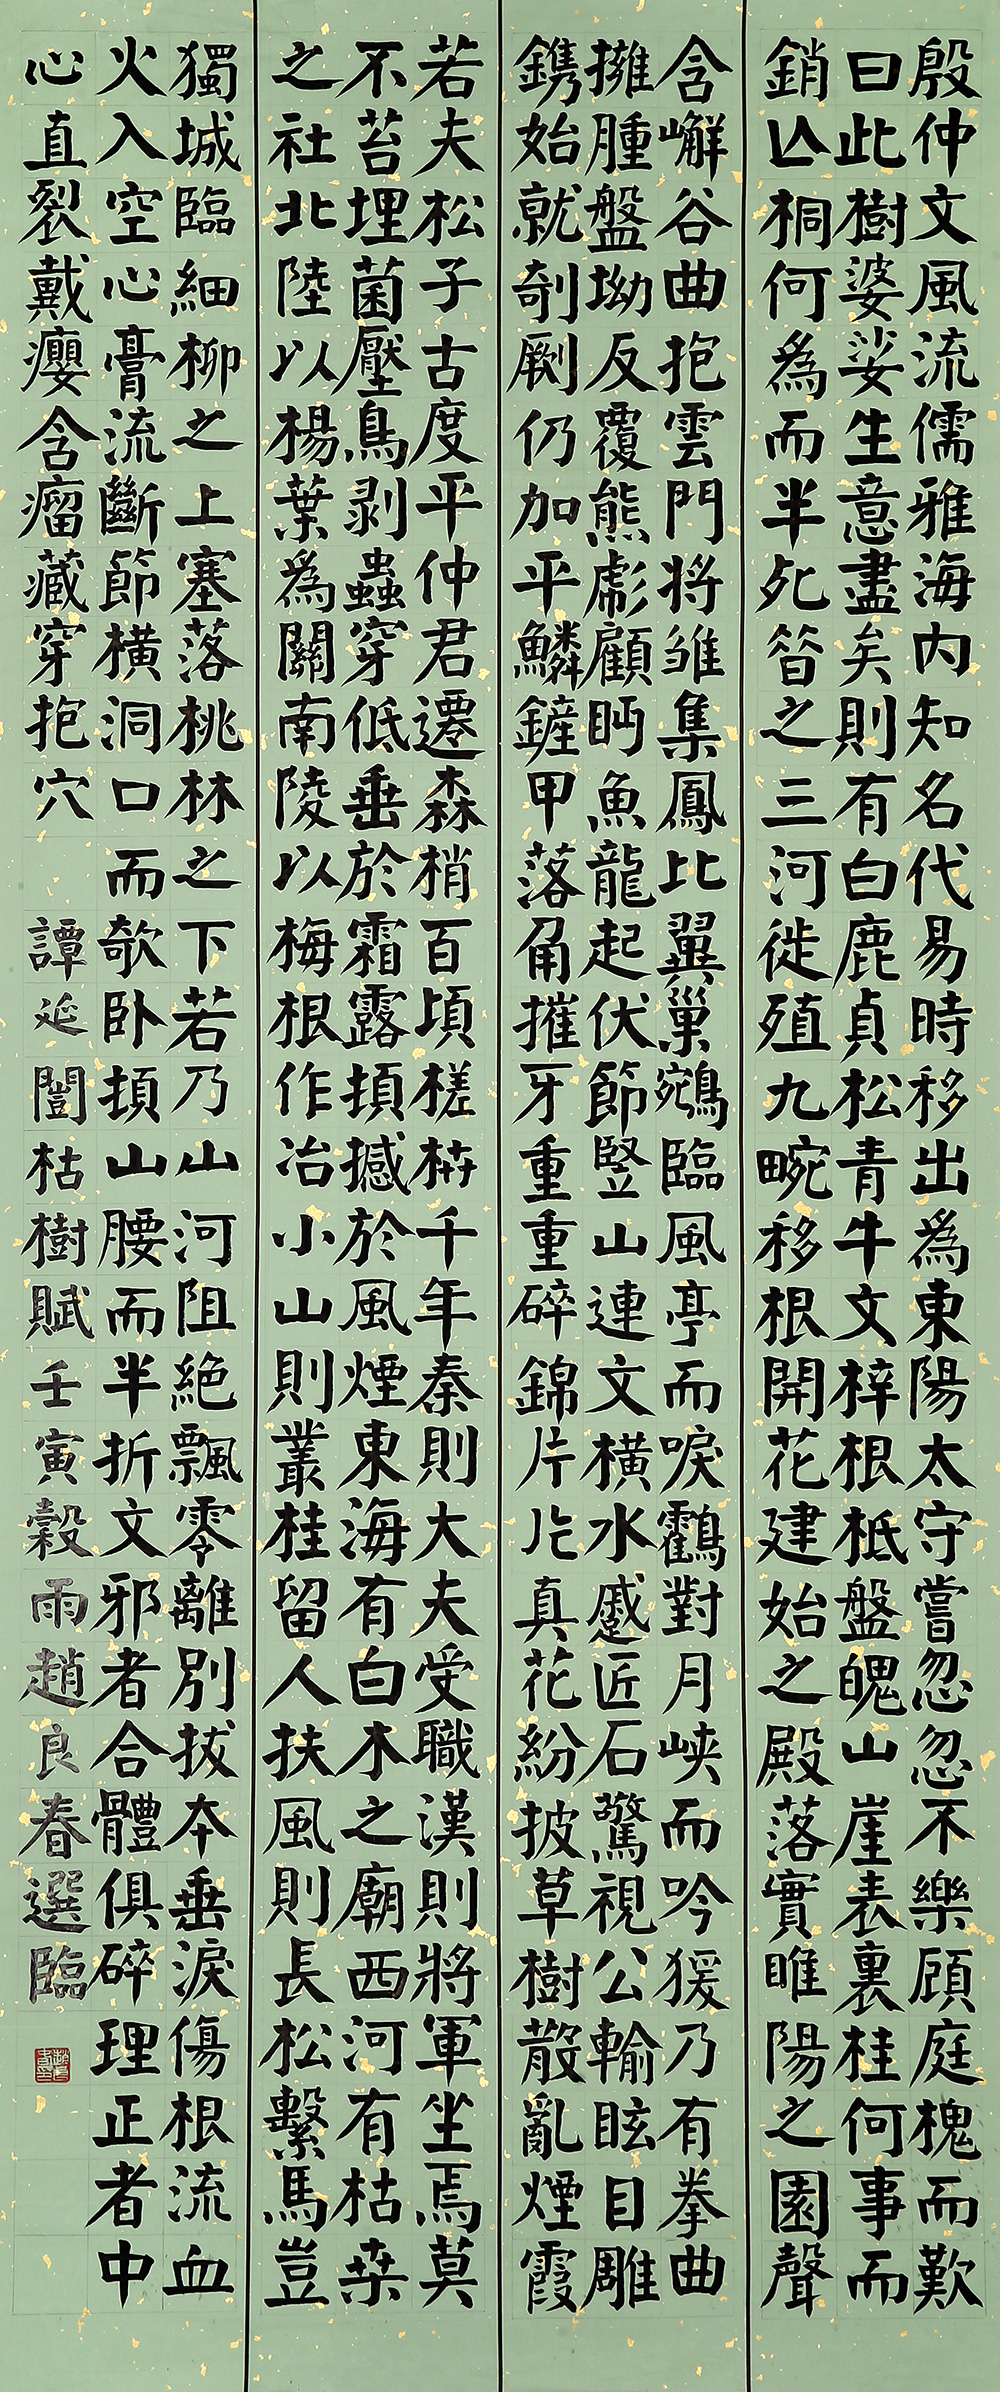 殷仲文風流儒雅海内知名代易時移出為東陽太守嘗忽忽不樂顧庭槐而歎
曰此樹婆娑生意盡矣則有白鹿貞松青牛文梓根柢盤魄山崖表裏桂何事而
銷亾桐何為而半死昝之三河徙殖九畹移根開花建始之殿落實睢陽之園聲
含嶰谷曲抱雲門將雛集鳳比翼巢鵷臨風亭而唳鶴對月峽而吟猨乃有拳曲
擁腫盤坳反覆熊彪顧眄魚龍起伏節竪山連文橫水蹙匠石驚視公輸眩目雕
鐫始就剞劂仍加平鱗鏟甲落角摧牙重重碎錦片片真花紛披草樹散亂煙霞
若夫松子古度平仲君遷森梢百頃槎枿千年秦則大夫受職漢則將軍坐焉莫
不苔埋菌壓鳥剥蟲穿低垂於霜露頓撼於風煙東海有白木之廟西河有枯桒
之社北陸以楊葉為關南陵以梅根作冶小山則叢桂留人扶風則長松繫馬豈
獨城臨細柳之上塞落桃林之下若乃山河阻絶飄零離別拔本垂淚傷根流血
火入空心膏流斷節橫洞口而欹卧頓山腰而半折文邪者合體俱碎理正者中
心直裂戴癭含瘤藏穿抱穴 譚延闓枯樹賦壬寅穀雨趙良春選臨